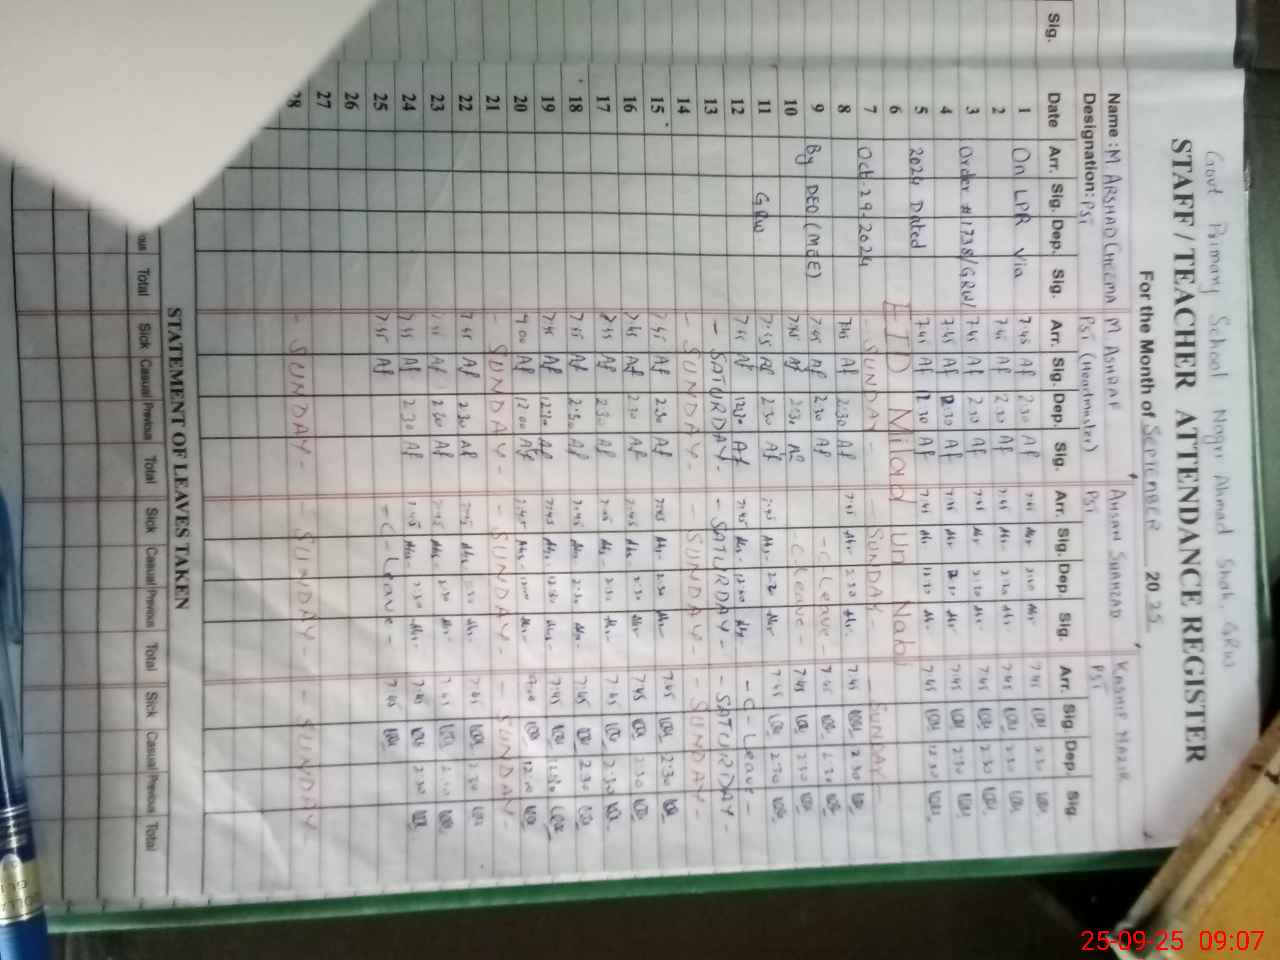 Govt Primary School Nogri Ahmad Shah, GRW
STAFF / TEACHER ATTENDANCE REGISTER
For the Month of SEPTEMBER 2025
Name : M ARSHAD CHEEMA M ASHRAF Ahsan Shahzad Kashif Nazir
Designation: PST PST (Headmaster) PST PST
Sig. Date Arr. Sig. Dep. Sig. Arr. Sig. Dep. Sig. Arr. Sig. Dep. Sig. Arr. Sig. Dep. Sig.
1 On LPR Via 7:45 Af 2:30 Af 7:45 2:30 7:45 2:30
2 7:45 Af 2:30 Af 7:45 2:30 7:45 2:30
3 Order #1738/GRW/ 7:45 Af 2:30 Af 7:45 2:30 7:45 2:30
4 7:45 Af 2:30 Af 7:45 2:30 7:45 2:30
5 2024 Dated 7:45 Af 12:30 Af 7:45 12:30 7:45 12:30
6 EID Milad un Nabi
7 Oct-29-2024 - SUNDAY - - SUNDAY - - SUNDAY -
8 7:45 Af 2:30 Af 7:45 2:30 7:45 2:30
9 By DEO (MEE) 7:45 Af 2:30 Af - C Leave - 7:45 2:30
10 7:45 Af 2:30 Af - C Leave - 7:45 2:30
11 GRW 7:45 Af 2:30 Af 7:45 2:30 7:45 2:30
12 7:45 Af 12:30 Af 7:45 12:30 - C - Leave -
13 - SATURDAY - - SATURDAY - - SATURDAY -
14 - SUNDAY - - SUNDAY - - SUNDAY -
15 7:45 Af 2:30 Af 7:45 2:30 7:45 2:30
16 7:45 Af 2:30 Af 7:45 2:30 7:45 2:30
17 7:45 Af 2:30 Af 7:45 2:30 7:45 2:30
18 7:45 Af 2:30 Af 7:45 2:30 7:45 2:30
19 7:45 Af 12:30 Af 7:45 12:30 7:45 12:30
20 9:00 Af 12:00 Af 12:00 12:00
21 - SUNDAY - - SUNDAY - - SUNDAY -
22 7:45 Af 2:30 Af 7:45 2:30 7:45 2:30
23 7:45 Af 2:30 Af 7:45 2:30 7:45 2:30
24 7:45 Af 2:30 Af 7:45 2:30 7:45 2:30
25 7:45 Af - C - Leave - 7:45
26
27
28 - SUNDAY - - SUNDAY - - SUNDAY
STATEMENT OF LEAVES TAKEN
Total Sick Casual Previous Total Sick Casual Previous Total Sick Casual Previous Total
25-09-25 09:07